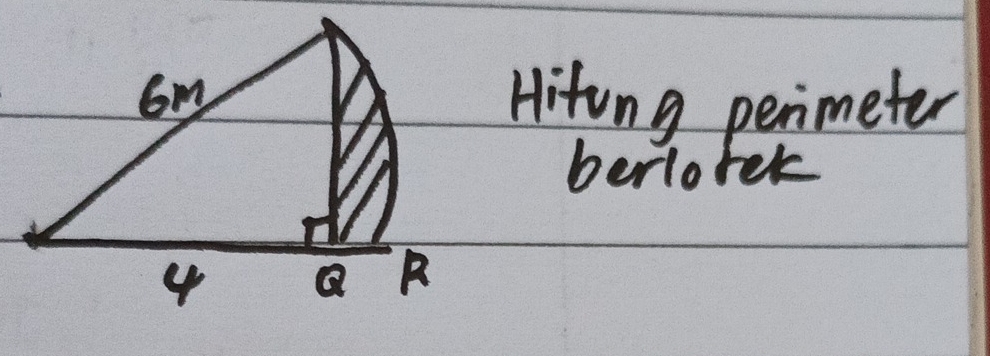 6m
Hitung perimeter
berlorek
4
Q
R